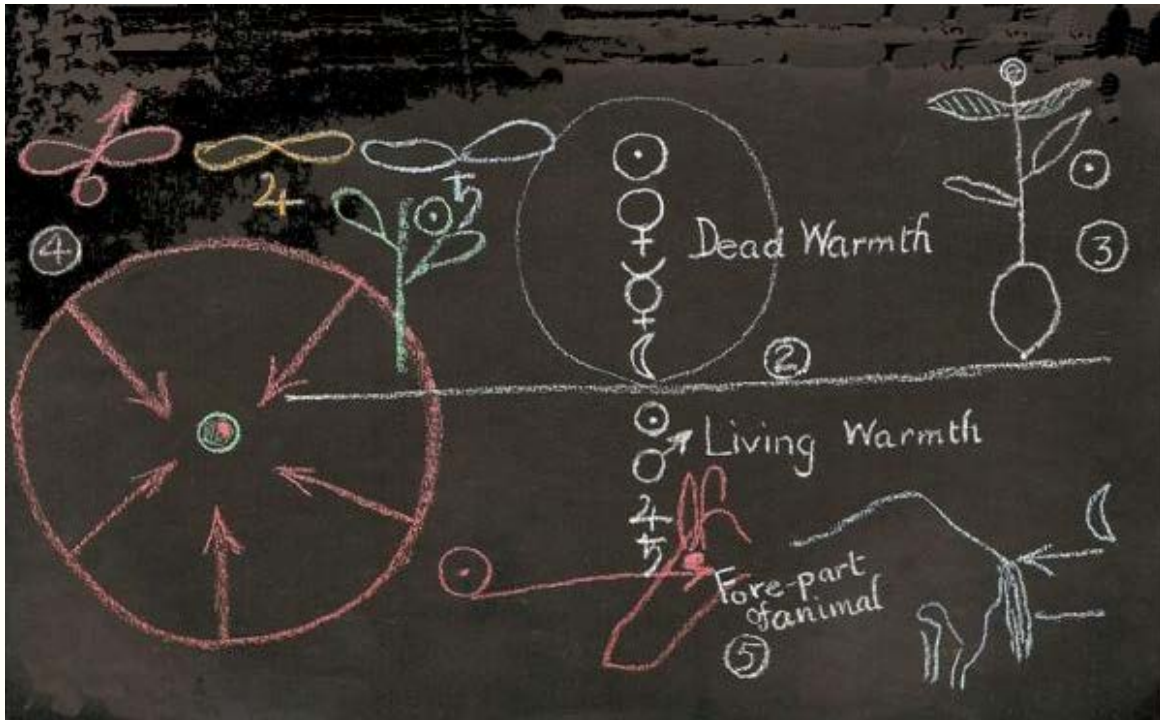 ♃
♄
☉
④
☉
♀
☿
☾
Dead Warmth
☉
③
②
☉
♂
♃
♄
Living Warmth
☾
☉
Fore-part
of animal
⑤